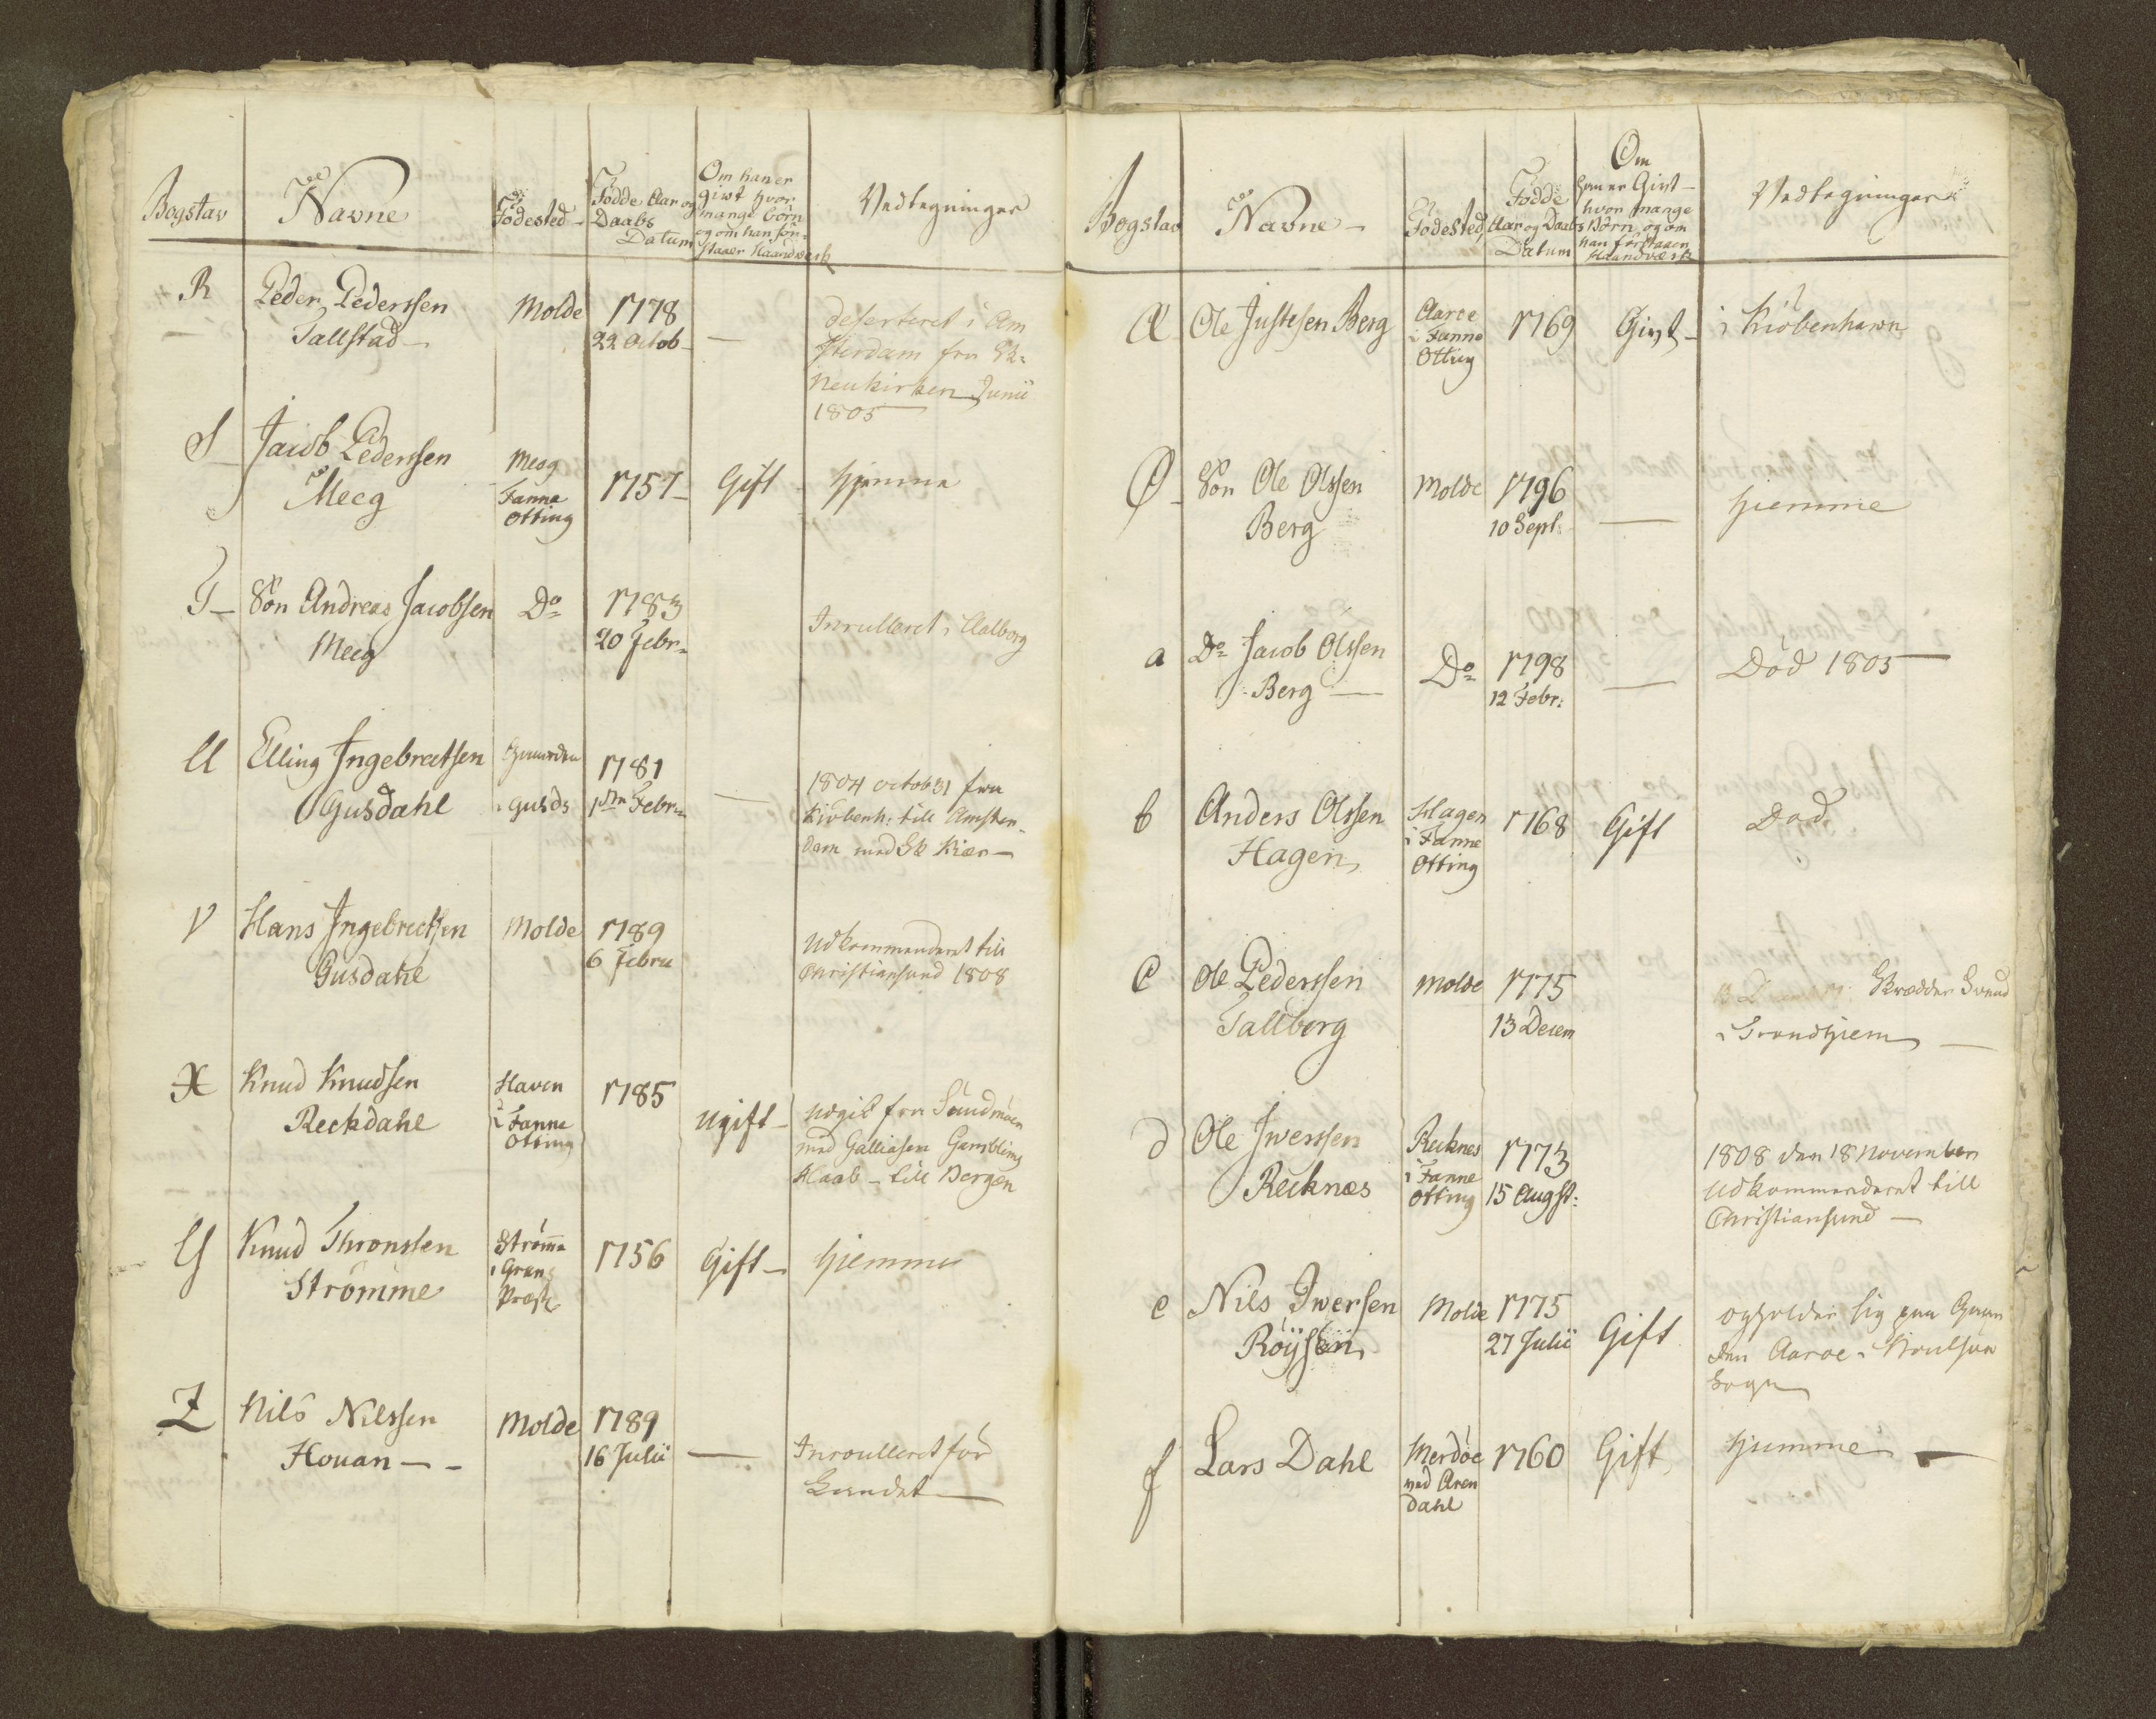 Bogstav
Navne
Födested
Födde Aar og
Daabs
Datum
Om han er
givt hvor
mange börn
og om han for-
staaer Haandværk
Vedtegninger
R
Peder Pederssen
Tallstad
Molde
1778
22 Octob
—
deserteret i Am
sterdam fra Sk:
Neukirken Junii
1805
S
Jacob Pederssen
Meeg
Meeg
Fanne
Otting
1757
Gift
hjemme
T
Sön Andreas Jacobsen
Meeg
Do
1783
20 Febr
Inrulleret i Aalborg
U
Elling Ingebrectsen
Gusdahl
i Gusds
1781
1ste Febr
—
1804 octob 31 fra
Kiöbenh: till Amster-
dam med Sk Kiær
V
Hans Ingebrectsen
Gusdahl
Molde
1789
6 Febru
Udkommenderet till
Christiansund 1808
X
Knud Knudsen
Reckdahl
Haven
i Fanne
Otting
1785
Ugift
Udgik fra Sundmöer
med Galliasen Gamblims
Haab - till Bergen
Y
Knud Thronssen
Strömme
Strömme
i Grans
Præst
1756
Gift
hjemme
Z
Nils Nilssen
Houan
Molde
1789
16 Julii
—
Inroulleret för
Landet
Bogstav
Navne
Födested
Födde
Aar og Daabs
Datum
Om
han er Givt
hvor mange
Börn, og om
han forstaaer
Haandværk
Vedtegninger
Æ
Ole Justesen Berg
Aaroe
i Fanne
Otting
1769
Givt
i Kiöbenhavn
Ø
Sön Ole Olssen
Berg
Molde
1796
10 Sept.
—
hjemme
a
Do Jacob Olssen
Berg
Do
1798
12 Febr:
—
Död 1805
b
Anders Olssen
Hagen
Hagen
i Fanne
Otting
1768
Gift
Död
c
Ole Pederssen
Tallberg
Molde
1775
13 Decem
Skrædder Svend
i Trondhjem
d
Ole Iwerssen
Recknæs
Recknes
i Fanne
Otting
1773
15 Augst:
1808 den 18 November
Udkommenderet till
Christiansund
e
Nils Iwersen
Röysen
Molde
1775
27 Julii
Gift
opholder sig paa Gaar
den Aaröe i
Sogn
f
Lars Dahl
Merdöe
ved Aren
dahl
1760
Gift
hjemme